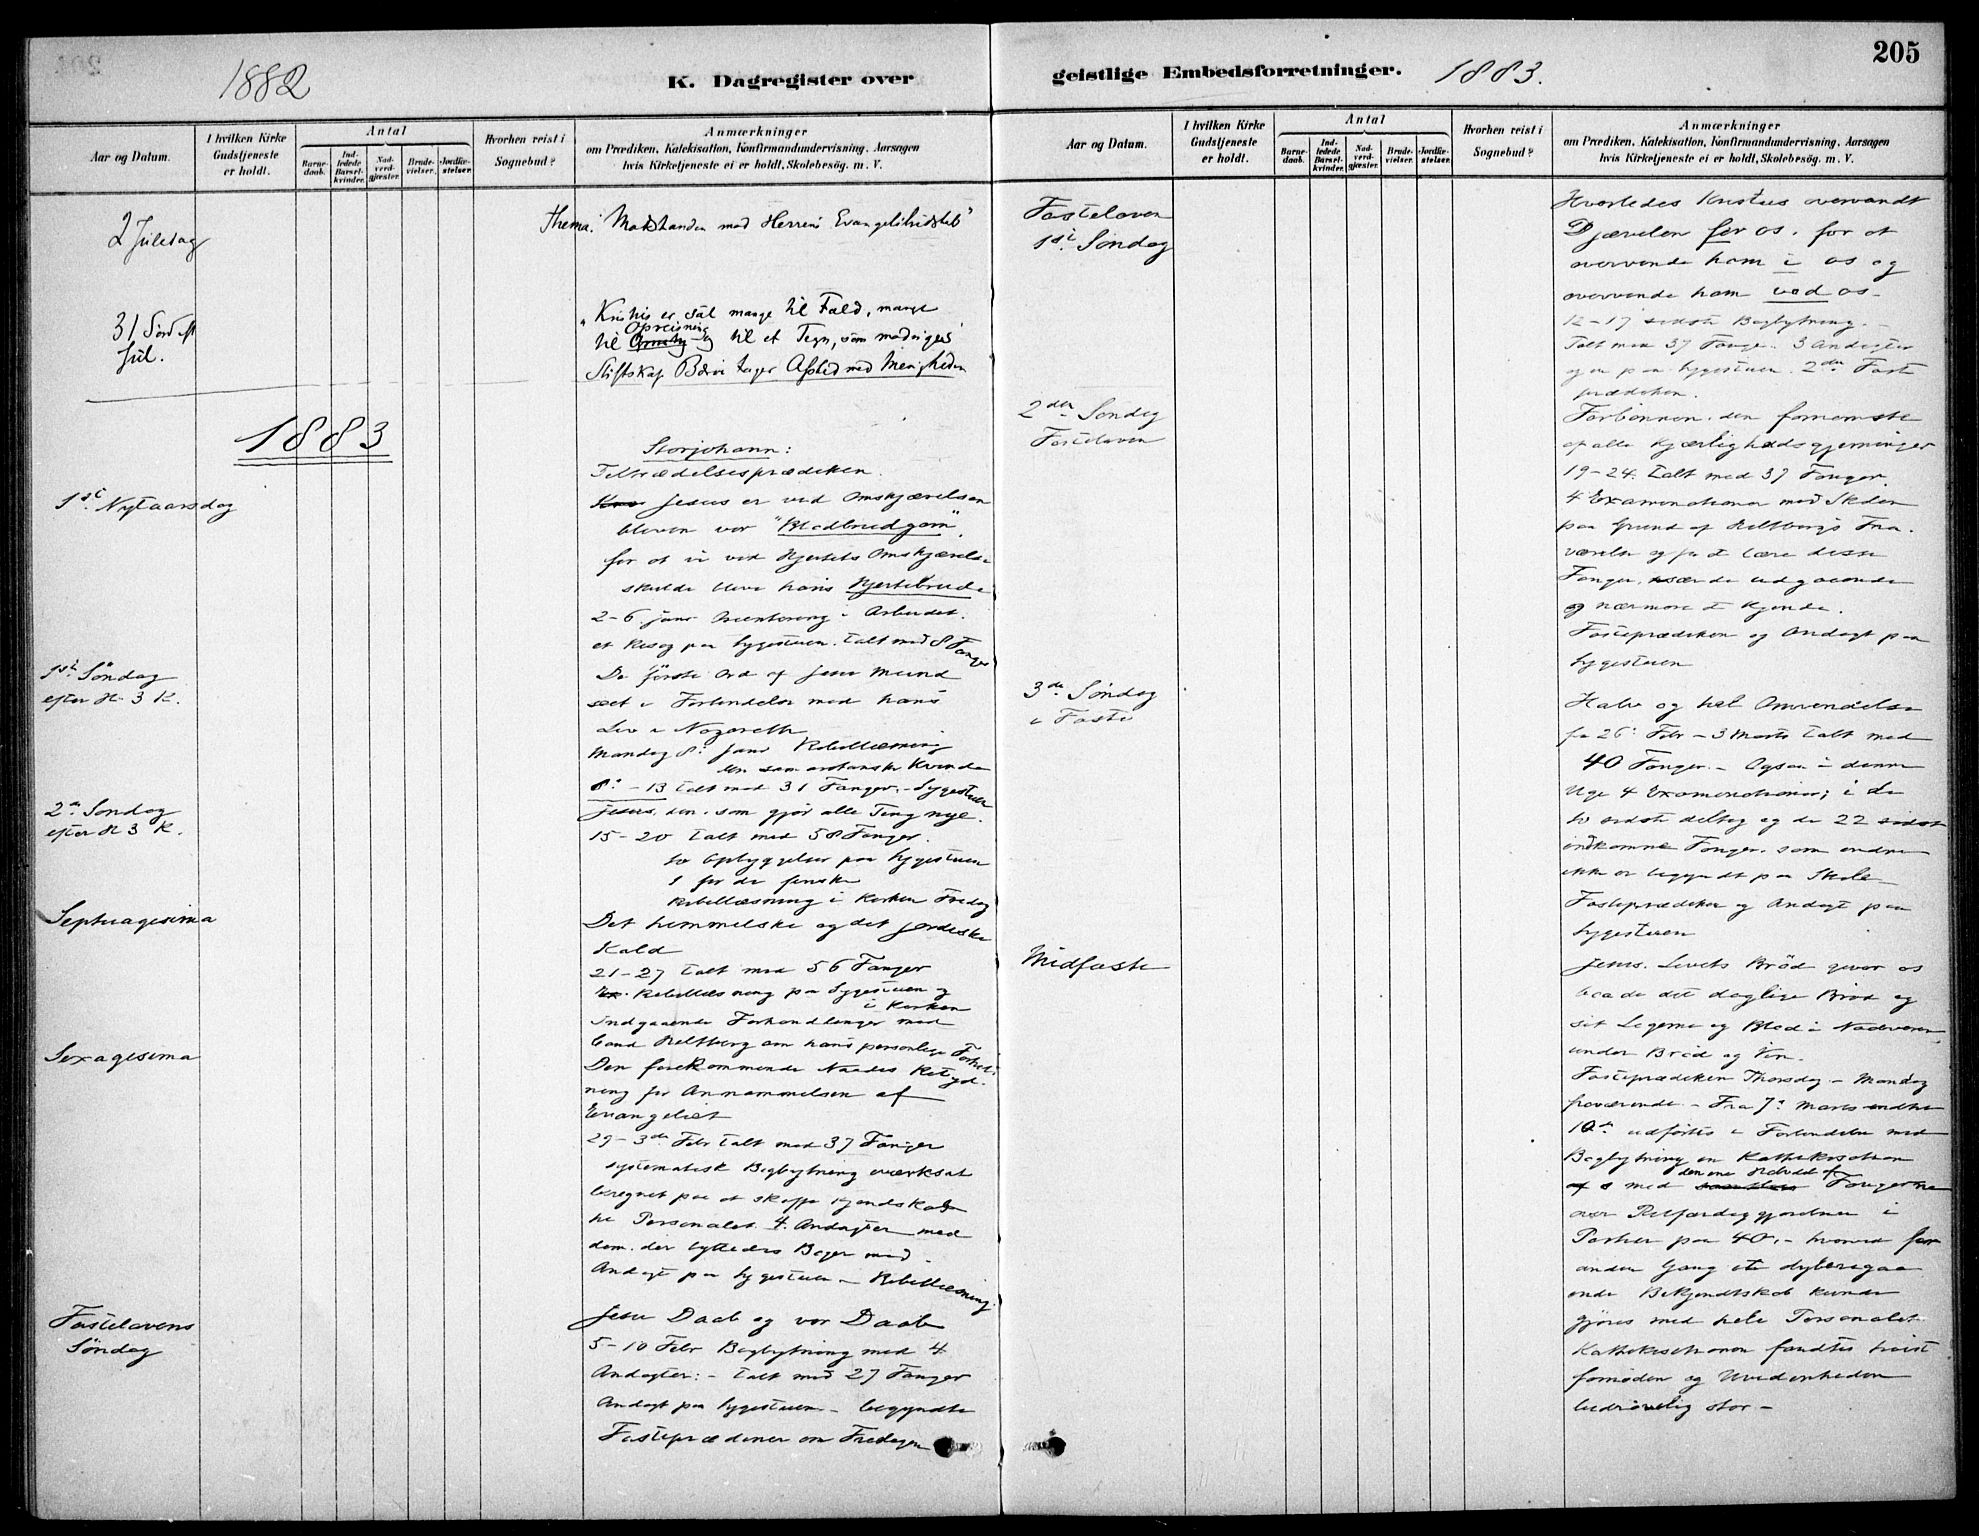 205
1882
K. Dagregister over
geistlige Embedsforretninger.
1883.
Aar og Datum.
I hvilken Kirke
Gudstjeneste
er holdt.
Antal
Barne-
daab.
Ind-
ledede
Barsel-
kvinder.
Nad-
verd-
gjester.
Brude-
vielser.
Jordfæ-
stelser.
Hvorhen reist i
Sognebud?
Anmærkninger
om Prædiken, Katekisation, Konfirmandundervisning, Aarsagen
hvis Kirketjeneste ei er holdt, Skolebesög. m. V.
2 Juledag
Thema: Modstanden mod Herrens
31 Sönd eft
Jul.
"Kristus er sat mange til Fald, mange
Opreisning
til og til et Tegn, som modsiges
tager Afsked med Menigheden
1883
Storjohann:
Tiltrædelsesprædiken.
1ste Nytaarsdag
Jesus er ved Omskjærelsen
bleven vor "Blodbrudgom",
for at vi ved Hjertets Omskjærelse
skulde blive hans Hjertebrud
2-6 Janr Orientering i Arbeidet.
et Besög paa Sygestuen. talt med 8 Fanger
1ste Söndag
efter H. 3 K.
De förste Ord af Jesu Mund
seet i Forbindelse med hans
Liv i Nazareth
Mandag 8de Janr Bibellæsning
den samaritanske Kvinde
8de - 13 talt med 31 Fanger. - Sygestuen
2den Söndag
efter H 3 K.
Jesus, den, som gjör alle Ting nye.
15-20 talt med 58 Fanger.
to Opbyggelser paa Sygestuen
1 for de finske
Bibellæsning i Kirken Fredag
Septuagesima
Det himmelske og det jordiske
Kald
21-27 talt med 56 Fanger
Bibellæsning paa Sygestuen og
i Kirken
Indgaaende Forhandlinger med
Cand Reltberg om hans personlige Forhold
Sexagesima
Den forekommende Naades Betyd-
ning for Annammelsen af
Evangeliet
29-3die Febr talt med 37 Fanger
systematisk Bogbytning iværksat
beregnet paa at skaffe Kjendskab
til Personalet. 4 Andagter med
dem, der byttedes Böger med
Andagt paa Sygestuen - Bibellæsning.
Fastelavens
Söndag
Jesu Daab og vor Daab
5-10 Febr Bogbytning med 4
Andagter: - talt med 27 Fanger
Andagt paa Sygestuen - begyndte
Fasteprædikener om Fredagen
Aar og Datum.
I hvilken Kirke
Gudstjeneste
er holdt.
Antal
Barne-
daab.
Ind-
ledede
Barsel-
kvinder.
Nad-
verd-
gjester.
Brude-
vielser.
Jordfæ-
stelser.
Hvorhen reist i
Sognebud?
Anmærkninger
om Prædiken, Katekisation, Konfirmandundervisning, Aarsagen
hvis Kirketjeneste ei er holdt, Skolebesög. m. V.
Fastelaven
1ste Söndag
Hvorledes Kristus overvandt
Djævelen for os, for at
overvinde ham i os og
overvinde ham ved os.
12-17 sidste Bogbytning. -
Talt med 37 Fanger. 3 Andagter
og en paa Sygestuen. 2den Faste
prædiken.
2den Söndag
Fastelaven
Forbönnen, den fornemste
af alle Kjærlighedsgjerninger
19-24. talt med 37 Fanger.
4 Examinationer med Skolen
paa Grund af Reltbergs Fra-
værelse og for at lære disse
Fanger, især de udgaaende
og nærmere at kjende.
Fasteprædiken og Andagt paa
Sygestuen
3die Söndag
i Faste
Halv og hel Omvendelse
fra 26de Febr - 3 Marts talt med
40 Fanger. - Ogsaa i denne
Uge 4 Examinationer; i de
to sidste deltog og de 22 sidst
indkomne Fanger, som endnu
ikke er begyndt paa Skole
Fasteprædiken og Andagt paa
Sygestuen
Midfaste
Jesus, Livets Bröd giver os
baade det daglige Bröd og
sit Legeme og Blod i Nadveren,
under Bröd og Vin.
Fasteprædiken Thorsdag - Mandag
fraværende - Fra 7de Marts
10de udfördes i Forbindelse med
Bogbytning en Kathekisation
den ene Halvdel af
med Fangerne
over Retfærdiggjörelsen i
Partier paa 40, - hvorved for
anden Gang et dyberegaa-
ende Bekjendtskab kunde
gjöres med hele Personalet.
Kathekisationen fandtes höist
fornöden og Uvidenheden
bedrövelig stor -